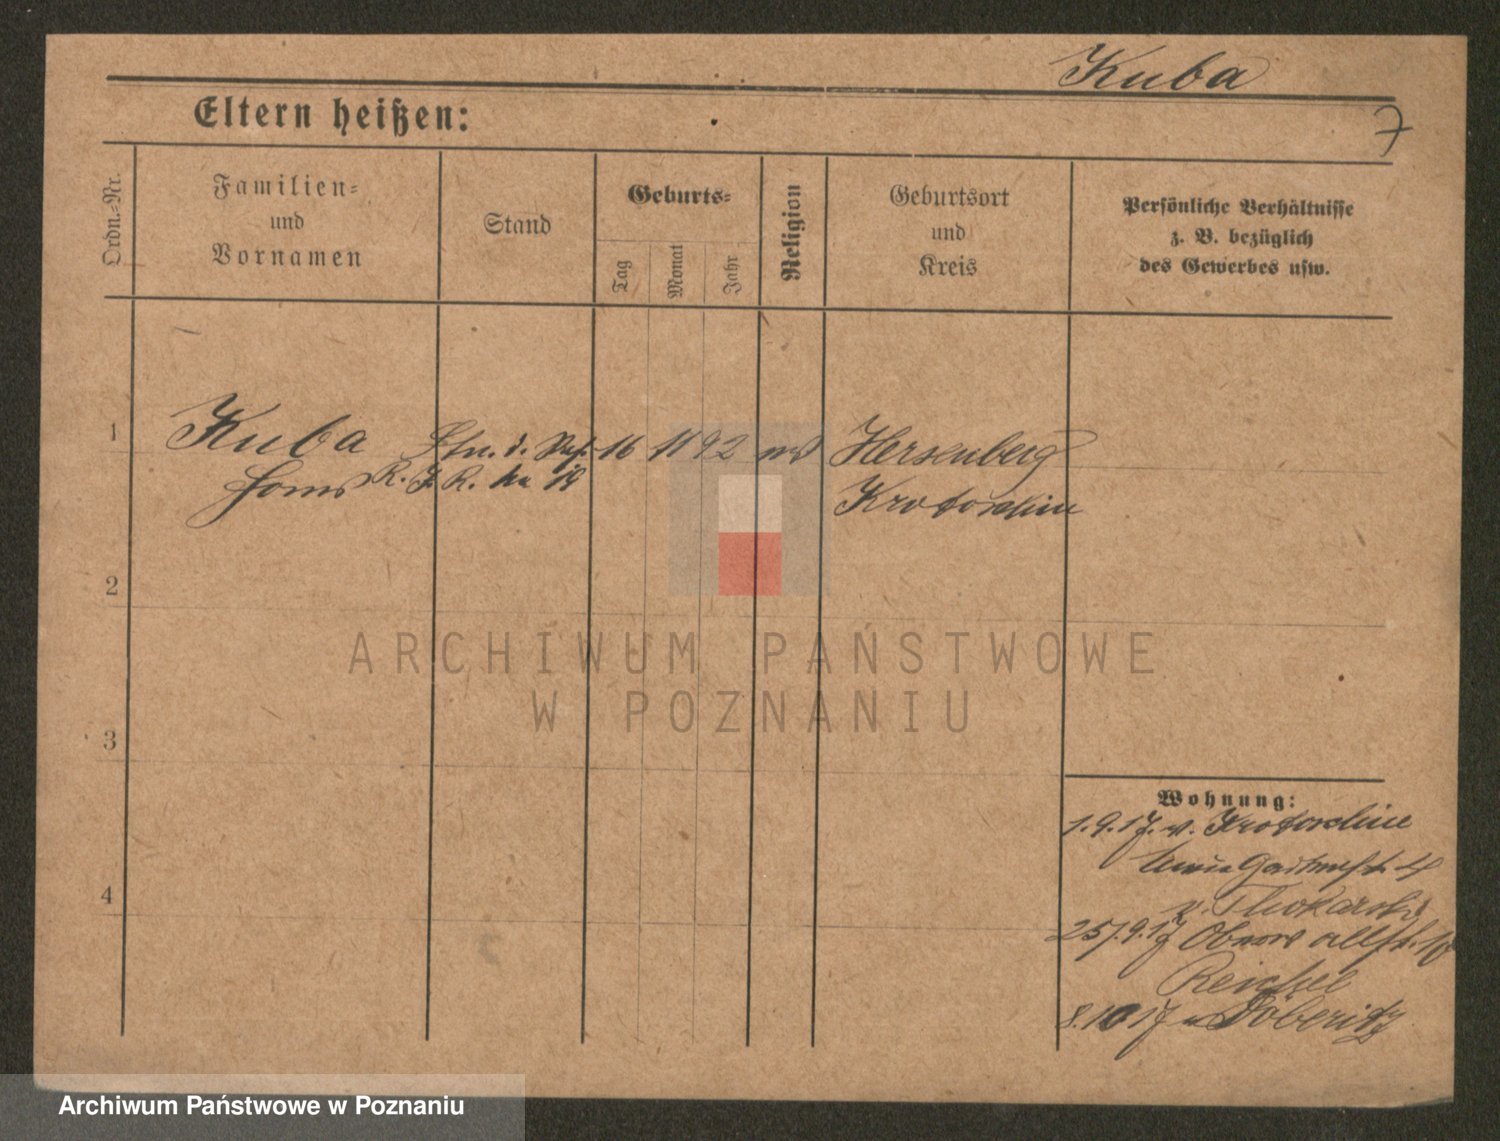 Kuba
7
Eltern heißen:
Ordn.-Nr.
Familien-
und
Vornamen
Stand
Geburts-
Tag
Monat
Jahr
Religion
Geburtsort
und
Kreis
Persönliche Verhältnisse
z. B. bezüglich
des Gewerbes usw.
1
Kuba
16 11 92
Hersenberg
R. J. R.
18
Krotoschin
2
ARCHIWUM PAŃSTWOWE
W POZNANIU
3
Wohnung:
1.9.17. v. Krotoschin
4
4
25.9.17
Reichel
8.10 17 n Döberitz
Archiwum Państwowe w Poznaniu